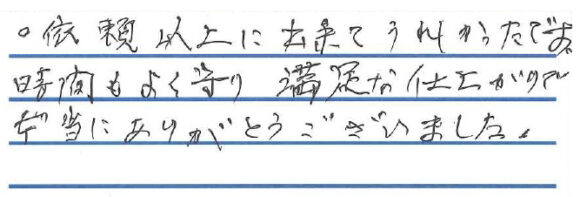 ○依頼以上に出来てうれかったです
時間もよく守り 満足な仕上がりで
本当にありがとうございました。